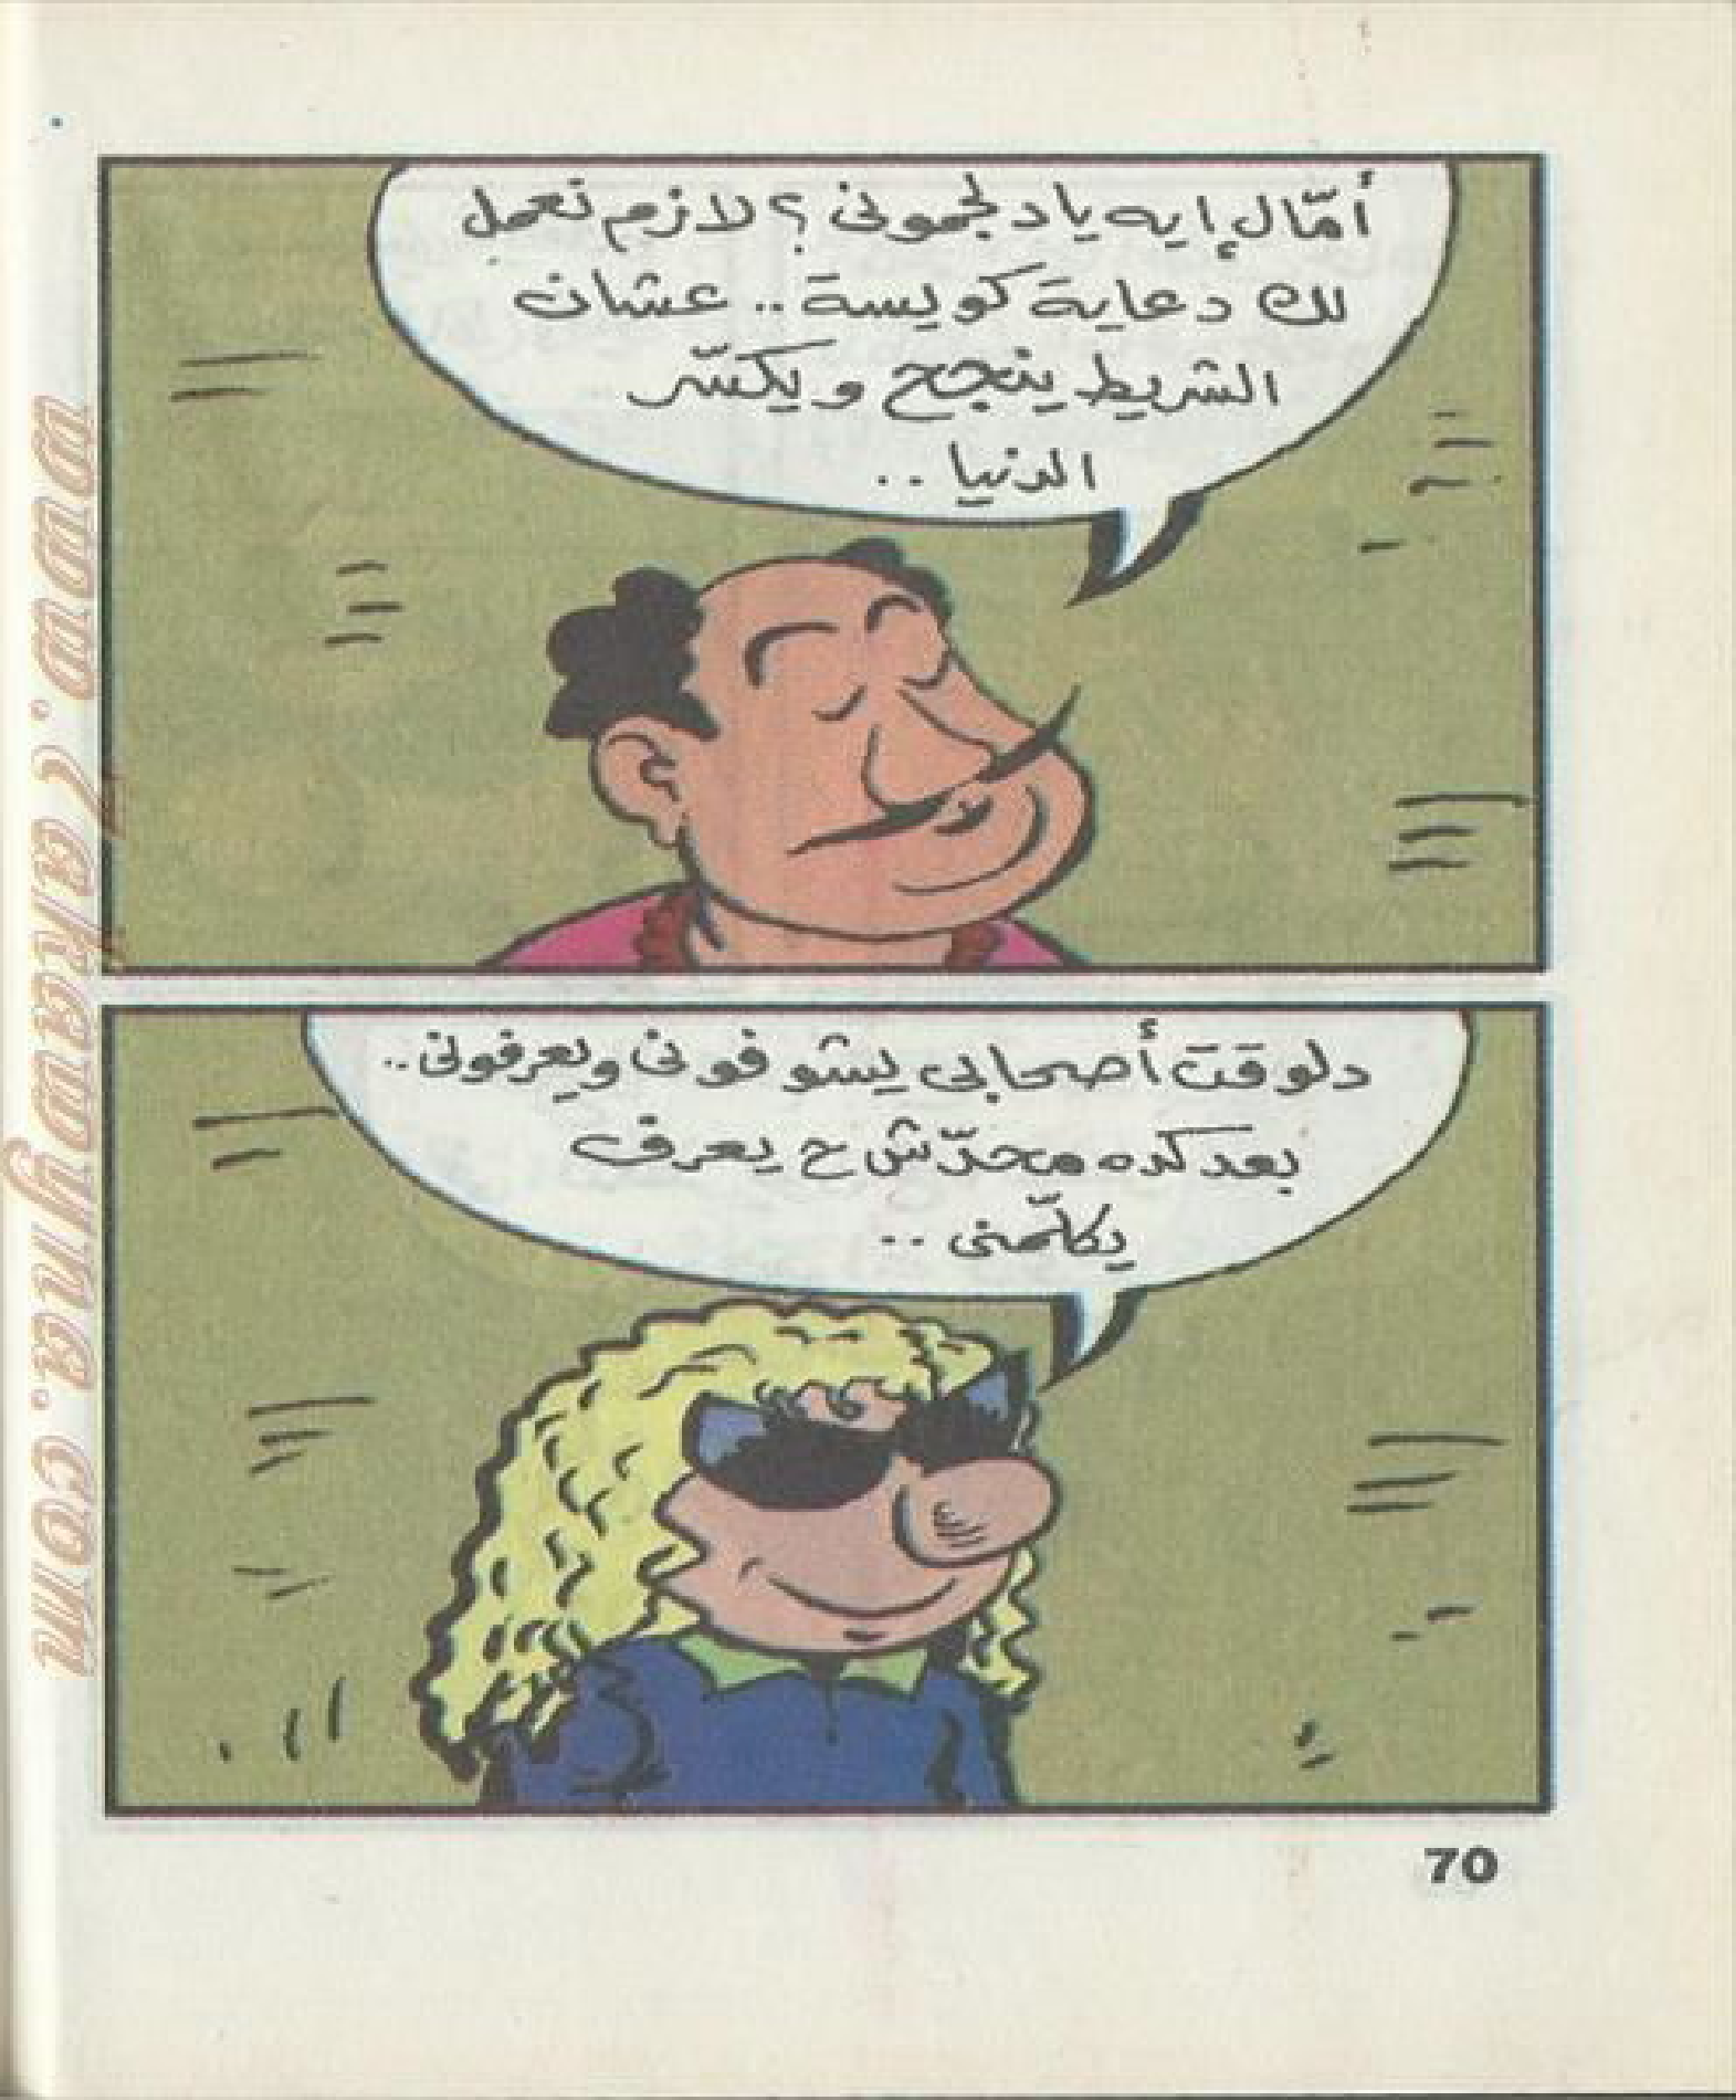 أمّال إيه ياد لجموني؟ لازم نعمل
لك دعاية كويسة.. عشان
الشريط ينجح ويكسّر
الدنيا..
دلوقت أصحابى يشوفونى ويعرفونى..
بعد كده محدّش ح يعرف
يكلّمنى..
70
www.rabaayna.com